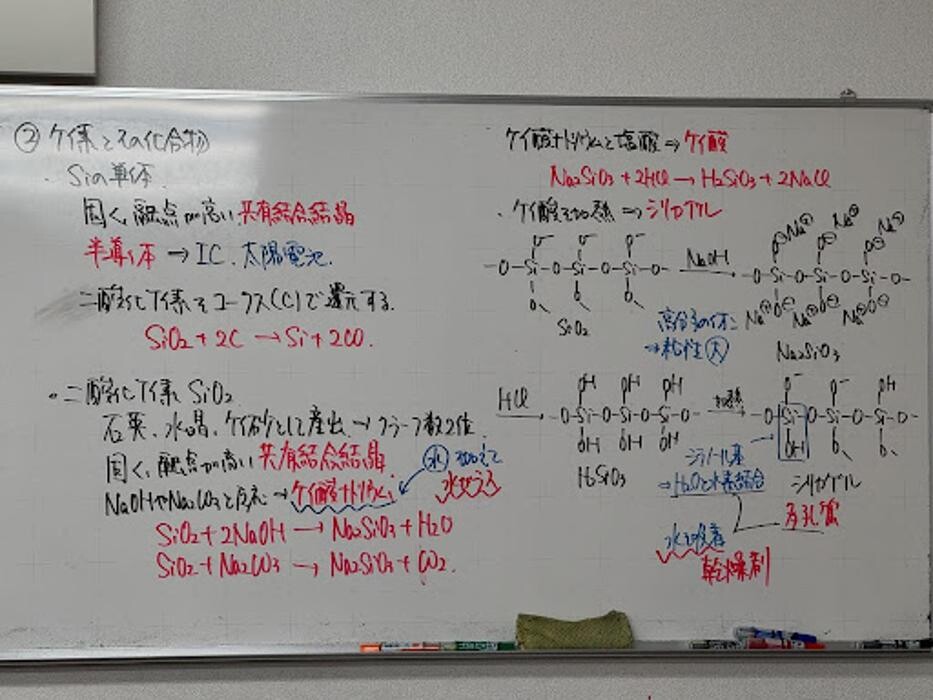 ② ケイ素とその化合物
・Siの単体
固く、融点が高い 共有結合結晶
半導体 → IC、太陽電池
二酸化ケイ素をコークス(C)で還元する.
SiO2 + 2C → Si + 2CO.
・二酸化ケイ素 SiO2
石英、水晶、ケイ砂として産出
固く、融点が高い 共有結合結晶
NaOHやNa2CO3と反応 → ケイ酸ナトリウム
水 加えて
水ガラス
SiO2 + 2NaOH → Na2SiO3 + H2O
SiO2 + Na2CO3 → Na2SiO3 + CO2.
ケイ酸ナトリウムと塩酸 ⇒ ケイ酸
Na2SiO3 + 2HCl → H2SiO3 + 2NaCl
・ケイ酸を加熱 ⇒ シリカゲル
O- O- O-
-O-Si-O-Si-O-Si-O-
O- O- O-
SiO2
NaOH →
Na⊕ Na⊕ Na⊕
O⊖ O⊖ O⊖
-O-Si-O-Si-O-Si-O-
O⊖ O⊖ O⊖
Na⊕ Na⊕ Na⊕
Na2SiO3
高分子のイオン
→ 粘性大
HCl →
OH OH OH
-O-Si-O-Si-O-Si-O-
OH OH OH
H2SiO3
加熱 →
O- O- OH
-O-Si-O-Si-O-Si-O-
OH O- O-
シラノール基
→ H2Oと水素結合
シリカゲル
多孔質
水を吸着
乾燥剤